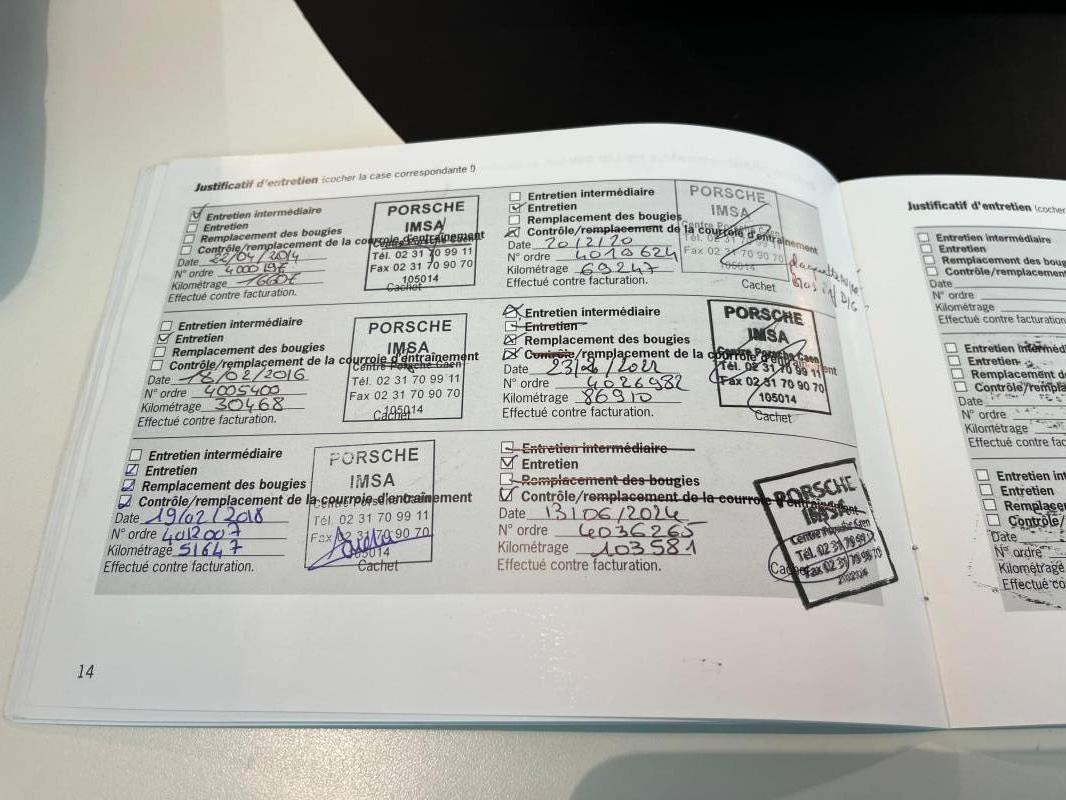 Justificatif d'entretien (cocher la case correspondante !)
Entretien intermédiaire
Entretien
Remplacement des bougies
Contrôle/remplacement de la courroie d'entraînement
Date 22/04/2014
N° ordre
Kilométrage
Effectué contre facturation.
PORSCHE
IMSA
Centre Porsche Caen
Tél. 02 31 70 99 11
Fax 02 31 70 90 70
105014
Cachet
Entretien intermédiaire
Entretien
Remplacement des bougies
Contrôle/remplacement de la courroie d'entraînement
Date 18/02/2016
N° ordre 4005400
Kilométrage 30468
Effectué contre facturation.
PORSCHE
IMSA
Centre Porsche Caen
Tél. 02 31 70 99 11
Fax 02 31 70 90 70
105014
Cachet
Entretien intermédiaire
Entretien
Remplacement des bougies
Contrôle/remplacement de la courroie d'entraînement
Date 19/02/2018
N° ordre 4012007
Kilométrage 51647
Effectué contre facturation.
PORSCHE
IMSA
Centre Porsche Caen
Tél. 02 31 70 99 11
Fax 02 31 70 90 70
105014
Cachet
Entretien intermédiaire
Entretien
Remplacement des bougies
Contrôle/remplacement de la courroie d'entraînement
Date 20/2/20
N° ordre 4019624
Kilométrage 69247
Effectué contre facturation.
PORSCHE
IMSA
Centre Porsche Caen
Tél. 02 31 70 99 11
Fax 02 31 70 90 70
105014
Cachet
Entretien intermédiaire
Entretien
Remplacement des bougies
Contrôle/remplacement de la courroie d'entraînement
Date
N° ordre 4026982
Kilométrage 86910
Effectué contre facturation.
PORSCHE
IMSA
Centre Porsche Caen
Tél. 02 31 70 99 11
Fax 02 31 70 90 70
105014
Cachet
Entretien intermédiaire
Entretien
Remplacement des bougies
Contrôle/remplacement de la courroie d'entraînement
Date 13/06/2024
N° ordre 4036265
Kilométrage 103581
Effectué contre facturation.
PORSCHE
Centre Porsche Caen
Cachet
14
Justificatif d'entretien (cocher
Entretien intermédiaire
Entretien
Remplacement des boug
Contrôle/remplacement
Date
N° ordre
Kilométrage
Effectué contre factu
Entretien intermédi
Entretien
Remplacement d
Contrôle/rempla
Date
N° ordre
Kilométrage
Effectué contre fac
Entretien int
Entretien
Remplace
Contrôle/
Date
N° ordre
Kilométrage
Effectué co